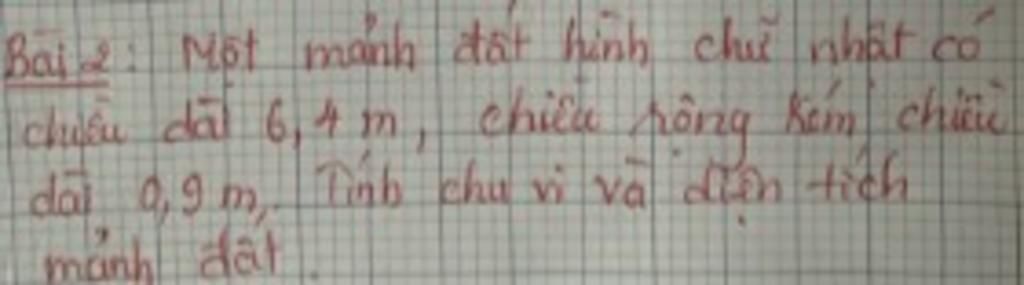 Bài 2: Một mảnh đất hình chữ nhật có
chiều dài 6,4 m, chiều rộng kém chiều
dài 0,9 m. Tính chu vi và diện tích
mảnh đất.